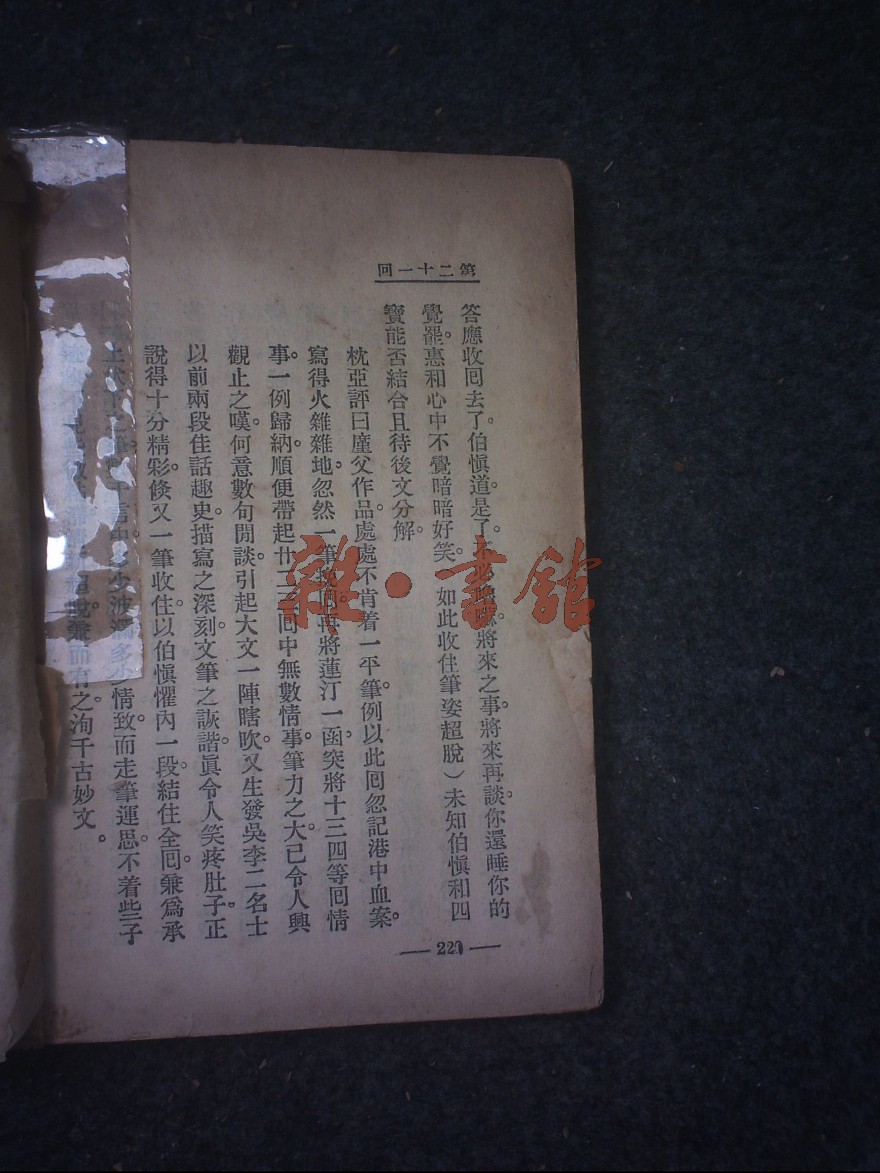 第二十一回
答應收囘去了。伯愼道。是了。不必將來之事。將來再談。你還睡你的
覺罷。惠和心中不覺暗暗好笑。（如此收住筆姿超脫）未知伯愼和四
寶能否結合。且待後文分解。
枕亞評曰。塵父作品。處處不肯着一平筆。例以此囘忽記港中血案。
寫得火雜雜地。忽然一筆囘。再將蓮汀一函。突將十三四等囘情
事。一例歸納。順便帶起廿二三囘中無數情事。筆力之大。已令人興
觀止之嘆。何意數句閒談。引起大文一陣瞎吹。又生發吳李二名士
以前兩段佳話趣史。描寫之深刻。文筆之詼諧。眞令人笑疼肚子。正
說得十分精彩。倏又一筆收住。以伯愼懼內一段。結住全囘。兼爲承
多少波瀾。多少情致。而走筆運思。不着些子
兼而有之。洵千古妙文。
220
雜·書館